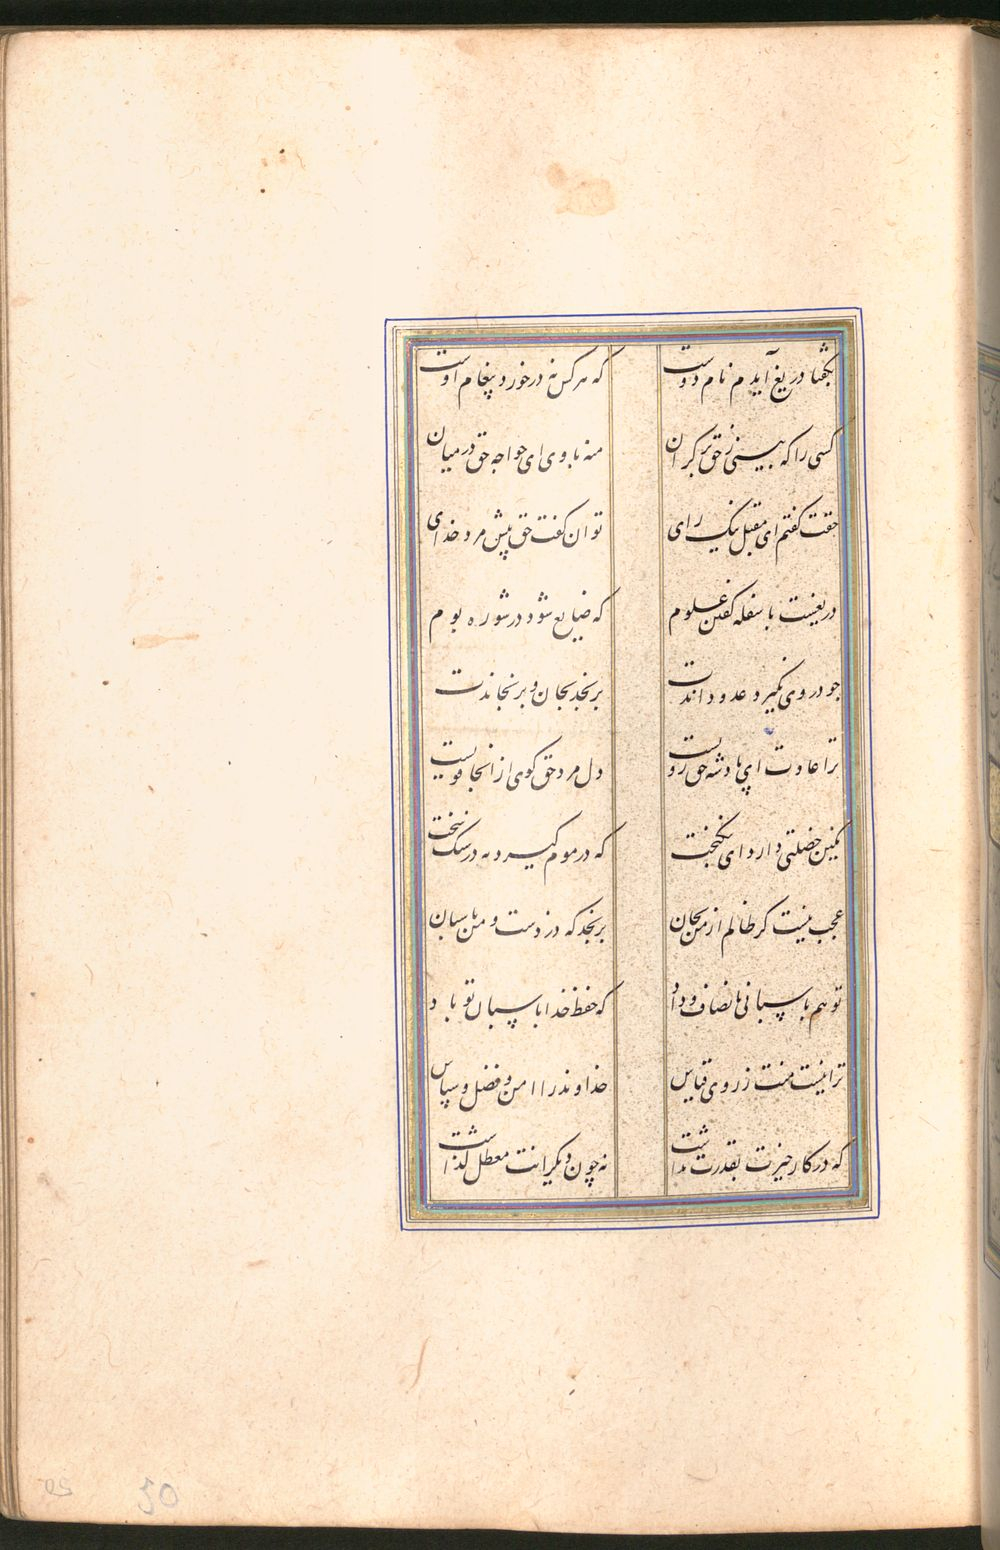 بگفتا دریغ آیدم نام دوست که هر کس نه درخورد پیغام اوست
کسی را که بینی ز حق بر کران منه با وی ای خواجه حق در میان
حقت گفتم ای مقبل نیک رای توان گفت حق پیش مرد خدای
دریغست با سفله گفتن علوم که ضایع شود در شوره بوم
چو در وی نگیرد عدو داندت برنجد بجان و برنجاندت
ترا عادت ای پادشه حق رویست دل مرد حق گوی از انجا قویست
نگین خصلتی دارد ای نیکبخت که در موم گیرد نه در سنک سخت
عجب نیست کر ظالم از من بجان برنجد که دزدست و من پاسبان
تو هم پاسبانی بانصاف و داد که حفظ خدا پاسبان تو باد
ترا نیست منت ز روی قیاس خداوند را من و فضل و سپاس
که در کار خیرت بقدرت بداشت نه چون دیکرانت معطل گذاشت
50